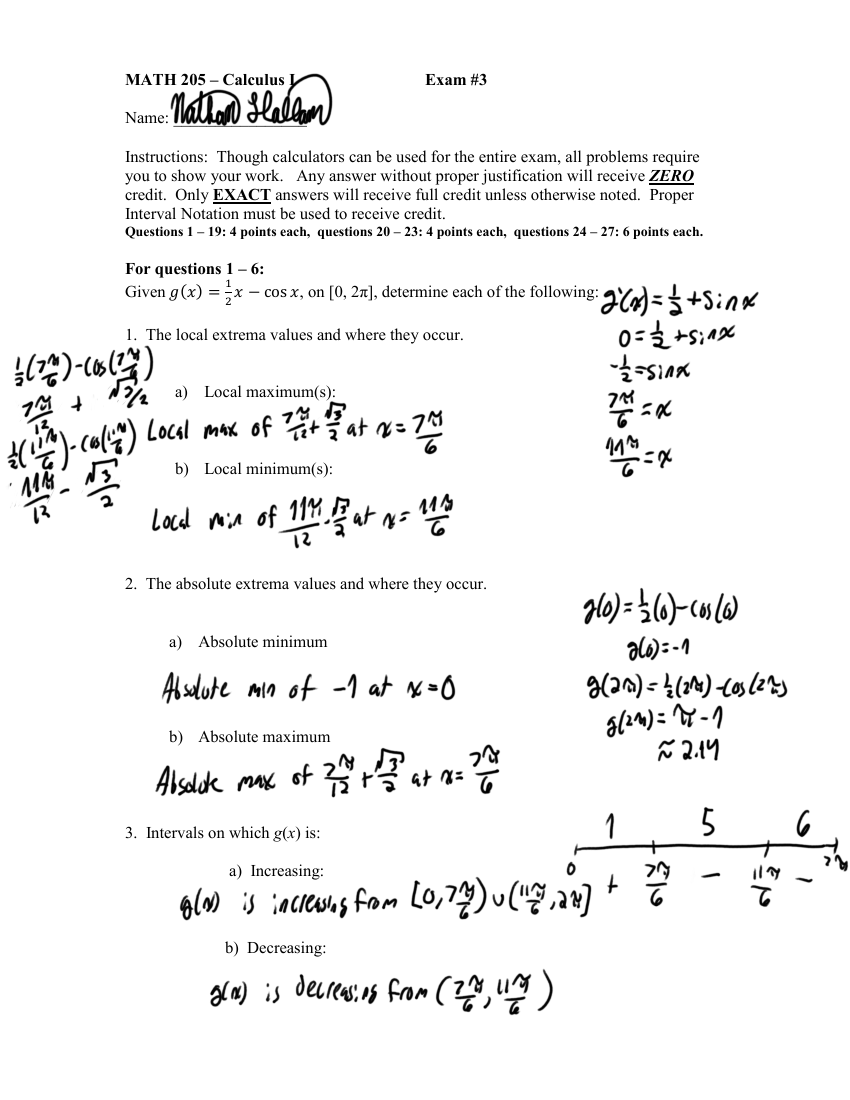 MATH 205 – Calculus I Exam #3
Name: Nathan Hallam
Instructions: Though calculators can be used for the entire exam, all problems require
you to show your work. Any answer without proper justification will receive ZERO
credit. Only EXACT answers will receive full credit unless otherwise noted. Proper
Interval Notation must be used to receive credit.
Questions 1 – 19: 4 points each, questions 20 – 23: 4 points each, questions 24 – 27: 6 points each.
For questions 1 – 6:
Given g(x) = 1/2 x − cos x, on [0, 2π], determine each of the following:
g'(x) = 1/2 + sin x
0 = 1/2 + sin x
-1/2 = sin x
7π/6 = x
11π/6 = x
1. The local extrema values and where they occur.
1/2(7π/6) - cos(7π/6)
7π/12 + √3/2
1/2(11π/6) - cos(11π/6)
11π/12 - √3/2
a) Local maximum(s):
Local max of 7π/12 + √3/2 at x = 7π/6
b) Local minimum(s):
Local min of 11π/12 - √3/2 at x = 11π/6
2. The absolute extrema values and where they occur.
g(0) = 1/2(0) - cos(0)
g(0) = -1
g(2π) = 1/2(2π) - cos(2π)
g(2π) = π - 1
≈ 2.14
a) Absolute minimum
Absolute min of -1 at x = 0
b) Absolute maximum
Absolute max of 7π/12 + √3/2 at x = 7π/6
3. Intervals on which g(x) is:
1 5 6
0 + 7π/6 − 11π/6 − 2π
a) Increasing:
g(x) is increasing from [0, 7π/6) ∪ (11π/6, 2π]
b) Decreasing:
g(x) is decreasing from (7π/6, 11π/6)